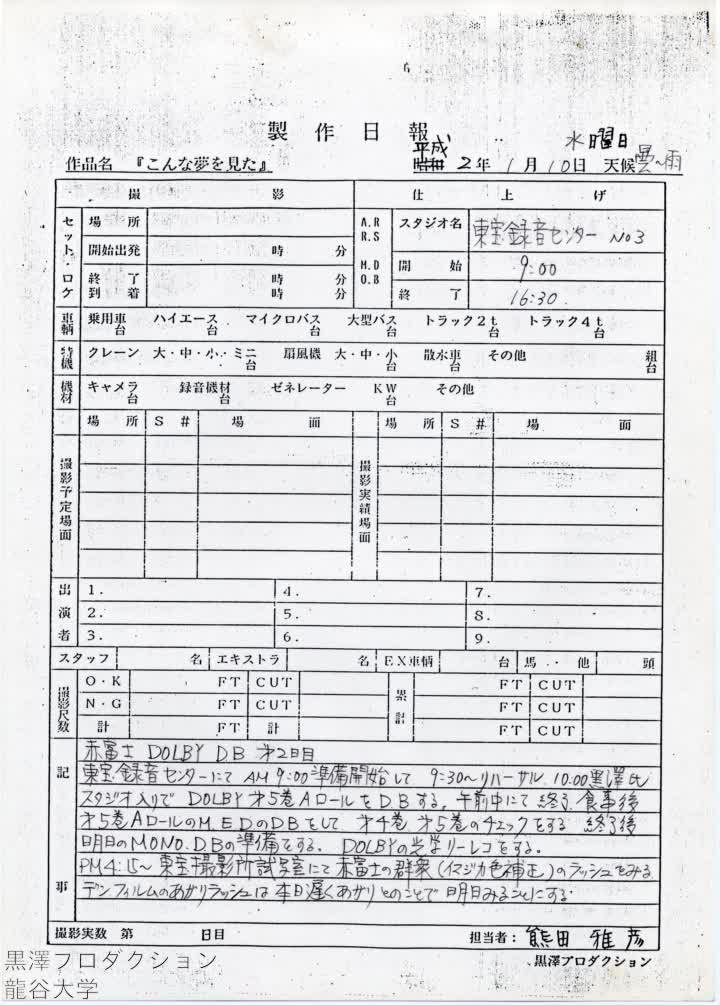 製作日報
平成
水曜日
作品名 『こんな夢を見た』 昭和 2年 1月10日 天候 曇〜雨
撮影 仕上げ
セット・ロケ 場所 A.R R.S M.D O.B スタジオ名 東宝録音センター No3
開始出発 時 分 開始 9:00
終了到着 時 分 終了 16:30.
車輌 乗用車 台 ハイエース 台 マイクロバス 台 大型バス 台 トラック2t 台 トラック4t 台
特機 クレーン 大・中・小・ミニ 台 扇風機 大・中・小 台 散水車 台 その他 組 台
機材 キャメラ 台 録音機材 台 ゼネレーター KW 台 その他
場所 S# 場面 場所 S# 場面
撮影予定場面 撮影実績場面
出演者 1. 4. 7.
2. 5. 8.
3. 6. 9.
スタッフ 名 エキストラ 名 EX車輌 台 馬・他 頭
撮影尺数 O・K FT CUT 累計 FT CUT
N・G FT CUT FT CUT
計 FT 計 FT CUT
記事
赤富士 DOLBY DB 才2日目
東宝録音センターにて AM 9:00 準備開始して 9:30〜リハーサル 10:00 黒澤氏
スタジオ入りで DOLBY 才5巻 AロールをDBする。午前中にて終了 食事後
才5巻AロールのM.EDのDBをして 才4巻 才5巻のチェックをする 終了後
明日のMONO.DBの準備をする。 DOLBYの光学リーレコをする。
PM4:15〜 東宝撮影所試写室にて赤富士の群衆(イマジカ色補正)のラッシュをみる
デンフィルムのあがりラッシュは本日遅くあがりとのことで明日みることにする.
撮影実数 第 日目 担当者: 熊田 雅彦
黒澤プロダクション
黒澤プロダクション
龍谷大学